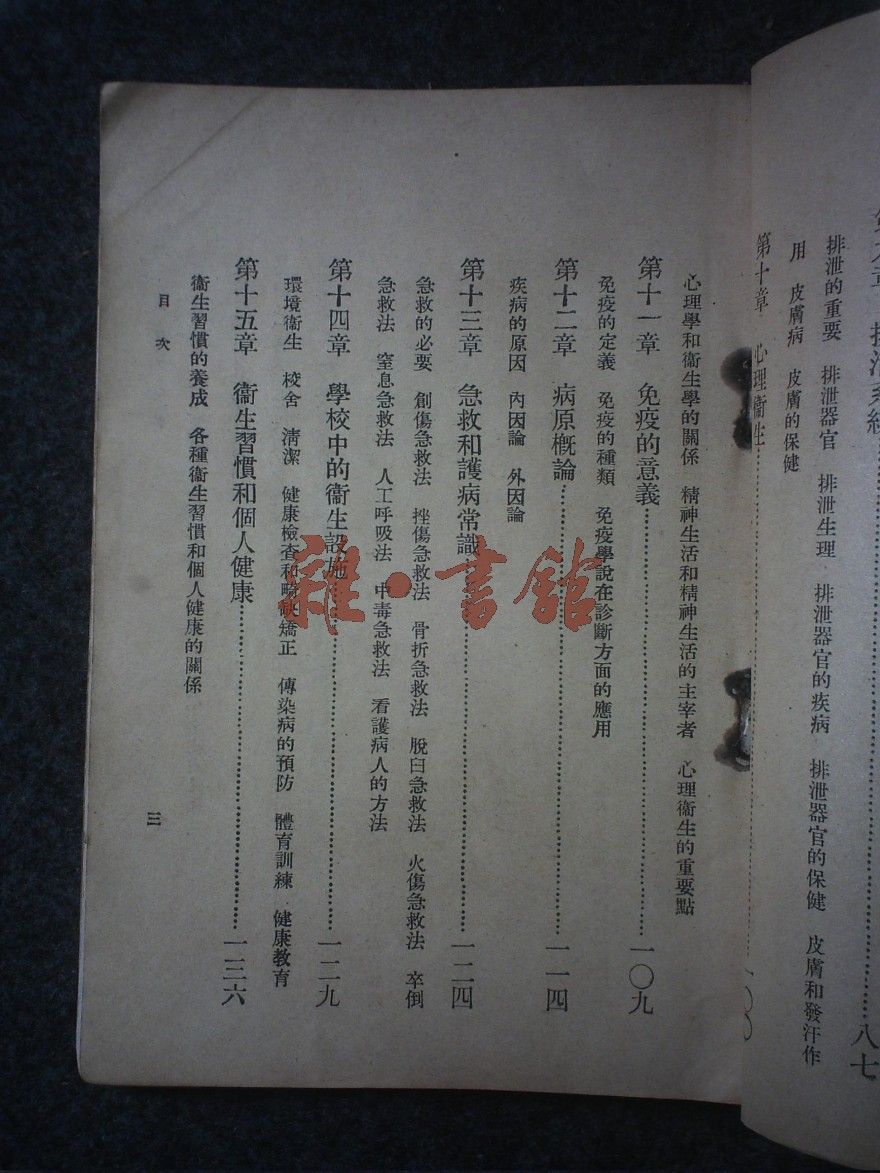 排泄系統……八七
排泄的重要　排泄器官　排泄生理　排泄器官的疾病　排泄器官的保健　皮膚和發汗作
用　皮膚病　皮膚的保健
第十章　心理衞生……一〇〇
心理學和衞生學的關係　精神生活和精神生活的主宰者　心理衞生的重要點
第十一章　免疫的意義……一〇九
免疫的定義　免疫的種類　免疫學說在診斷方面的應用
第十二章　病原槪論……一一四
疾病的原因　內因論　外因論
第十三章　急救和護病常識……一二四
急救的必要　創傷急救法　挫傷急救法　骨折急救法　脫臼急救法　火傷急救法　卒倒
急救法　窒息急救法　人工呼吸法　中毒急救法　看護病人的方法
第十四章　學校中的衞生設施……一二九
環境衞生　校舍　淸潔　健康檢查和畸缺矯正　傳染病的預防　體育訓練　健康教育
第十五章　衞生習慣和個人健康……一三六
衞生習慣的養成　各種衞生習慣和個人健康的關係
目次
三
雜·書館